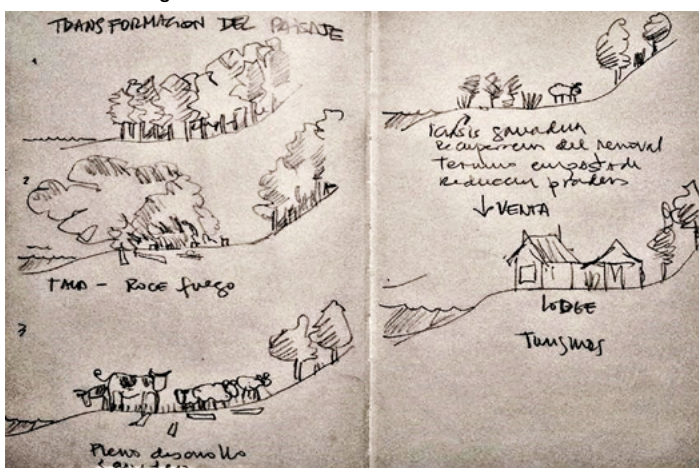 TRANSFORMACION DEL PAISAJE
1
2
TALA - ROCE fuego
3
Pleno desarrollo
ganadero
crisis ganadera
Recuperacion del renoval
Termino empastada
Reduccion pradera
↓ VENTA
LODGE
Turismo